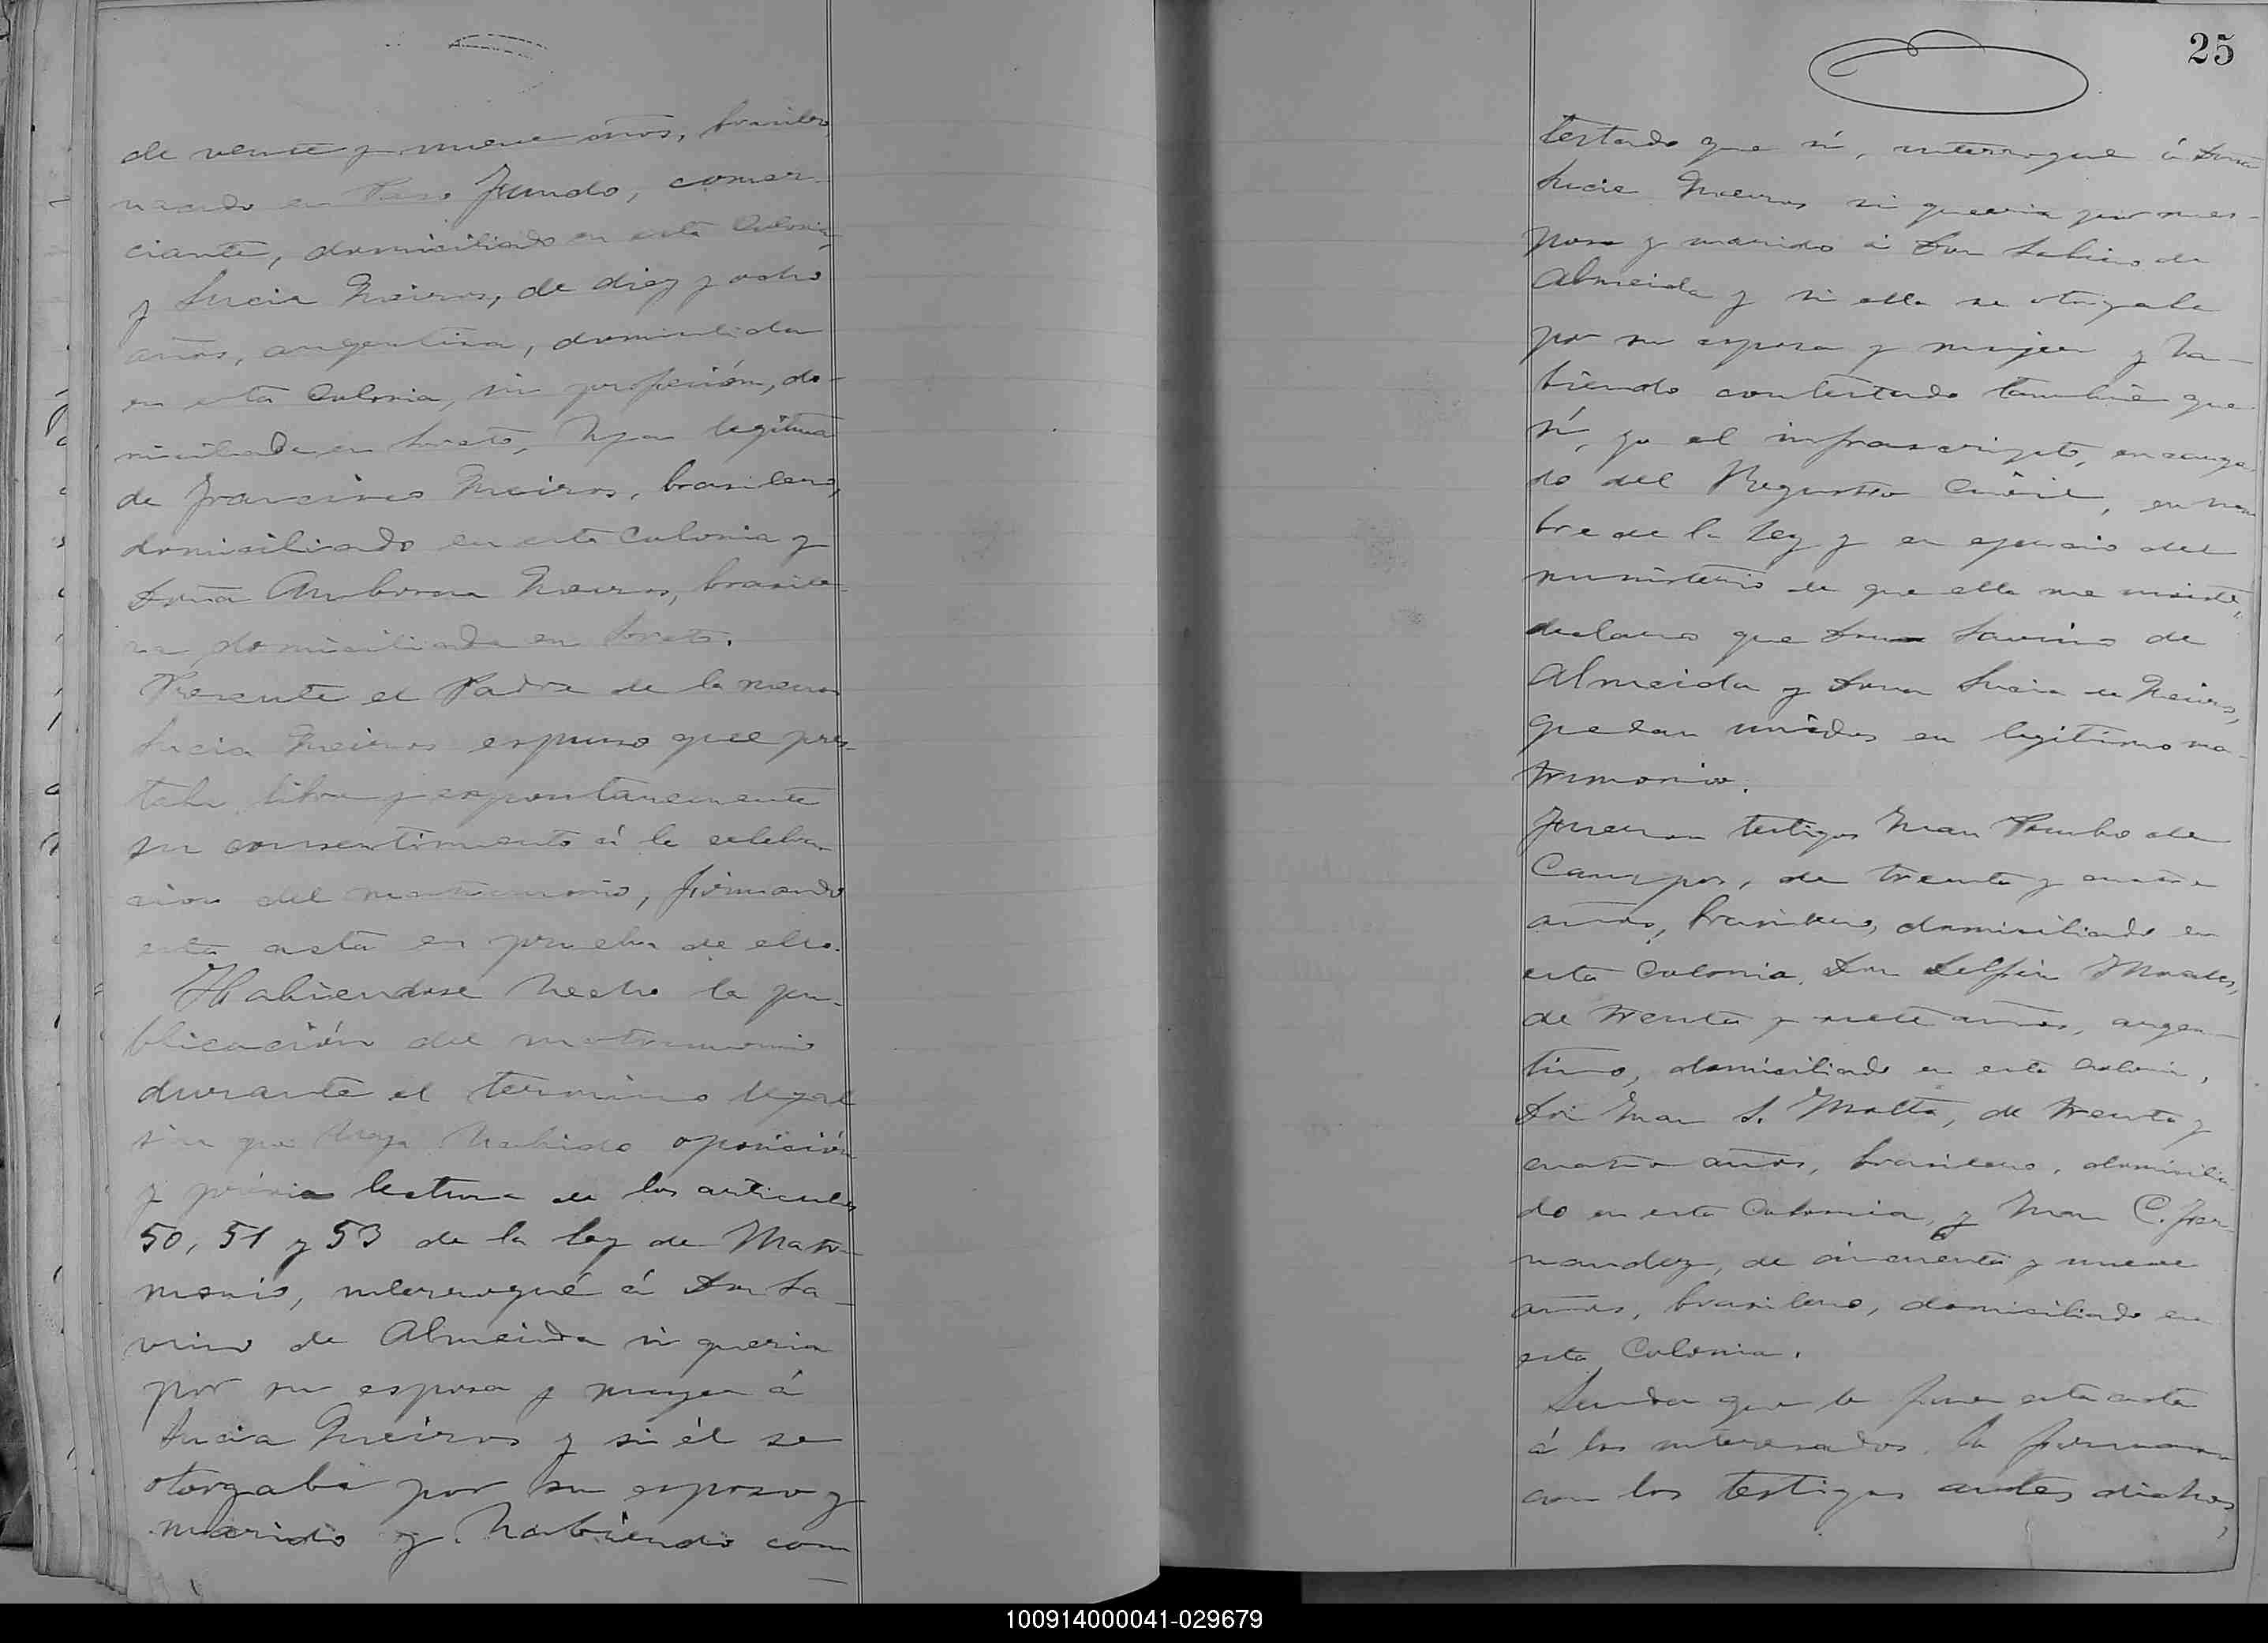 de veinte y nueve años, brasilero
nacido en Paso Fundo, comer-
ciante, domiciliado en esta Colonia,
y Lucia Neiros, de diez y ocho
años, argentina, domiciliada
en esta Colonia, sin profesión, do-
miciliada en Loreto, hija legitima
de Francisco Neiros, brasilero,
domiciliado en esta Colonia y
Doña Ambrosia Neiros, brasile-
ra domiciliada en Loreto.
Presente el Padre de la menor
Lucia Neiros espuso que pres-
taba libre y espontaneamente
su consentimiento á la celebra-
cion del matrimonio, firmando
esta acta en prueba de ello.
Habiendose hecho la pu-
blicación del matrimonio
durante el termino legal
sin que haya habido oposición
y prévia lectura de los articulos
50, 51 y 53 de la ley de Matri-
monio, interrogué á Don Sa-
vino de Almeida si queria
por su esposa y muger á
Lucia Neiros y si él se
otorgaba por su esposo y
marido y habiendo con
25
testado que sí, interrogué á Doña
Lucia Neiros si queria por su es-
poso y marido á Don Sabino de
Almeida y si ella se otorgaba
por su esposa y mujer y ha-
biendo contestado tambien que
sí, yo el infrascripto, encarga-
do del Registro Civil, en nom
bre de la Ley y en ejercicio del
ministerio de que ella me inviste,
declaro que Don Savino de
Almeida y Doña Lucia de Neiros,
quedan unidos en legitimo ma-
trimonio.
Fueron testigos Juan Pombo de
Campos, de treinta y cuatro
años, brasilero, domiciliado en
esta Colonia, Don Delfin Morales,
de treinta y siete años, argen-
tino, domiciliado en esta Colonia,
Don Juan S. Motta, de treinta y
cuatro años, brasilero, domicilia-
do en esta Colonia, y Juan C. Fer-
nandez, de cincuenta y nueve
años, brasilero, domiciliado en
esta Colonia.
Leida que le fuere esta acta
á los interesados, la firmaron
con los testigos antes dichos,
100914000041-029679